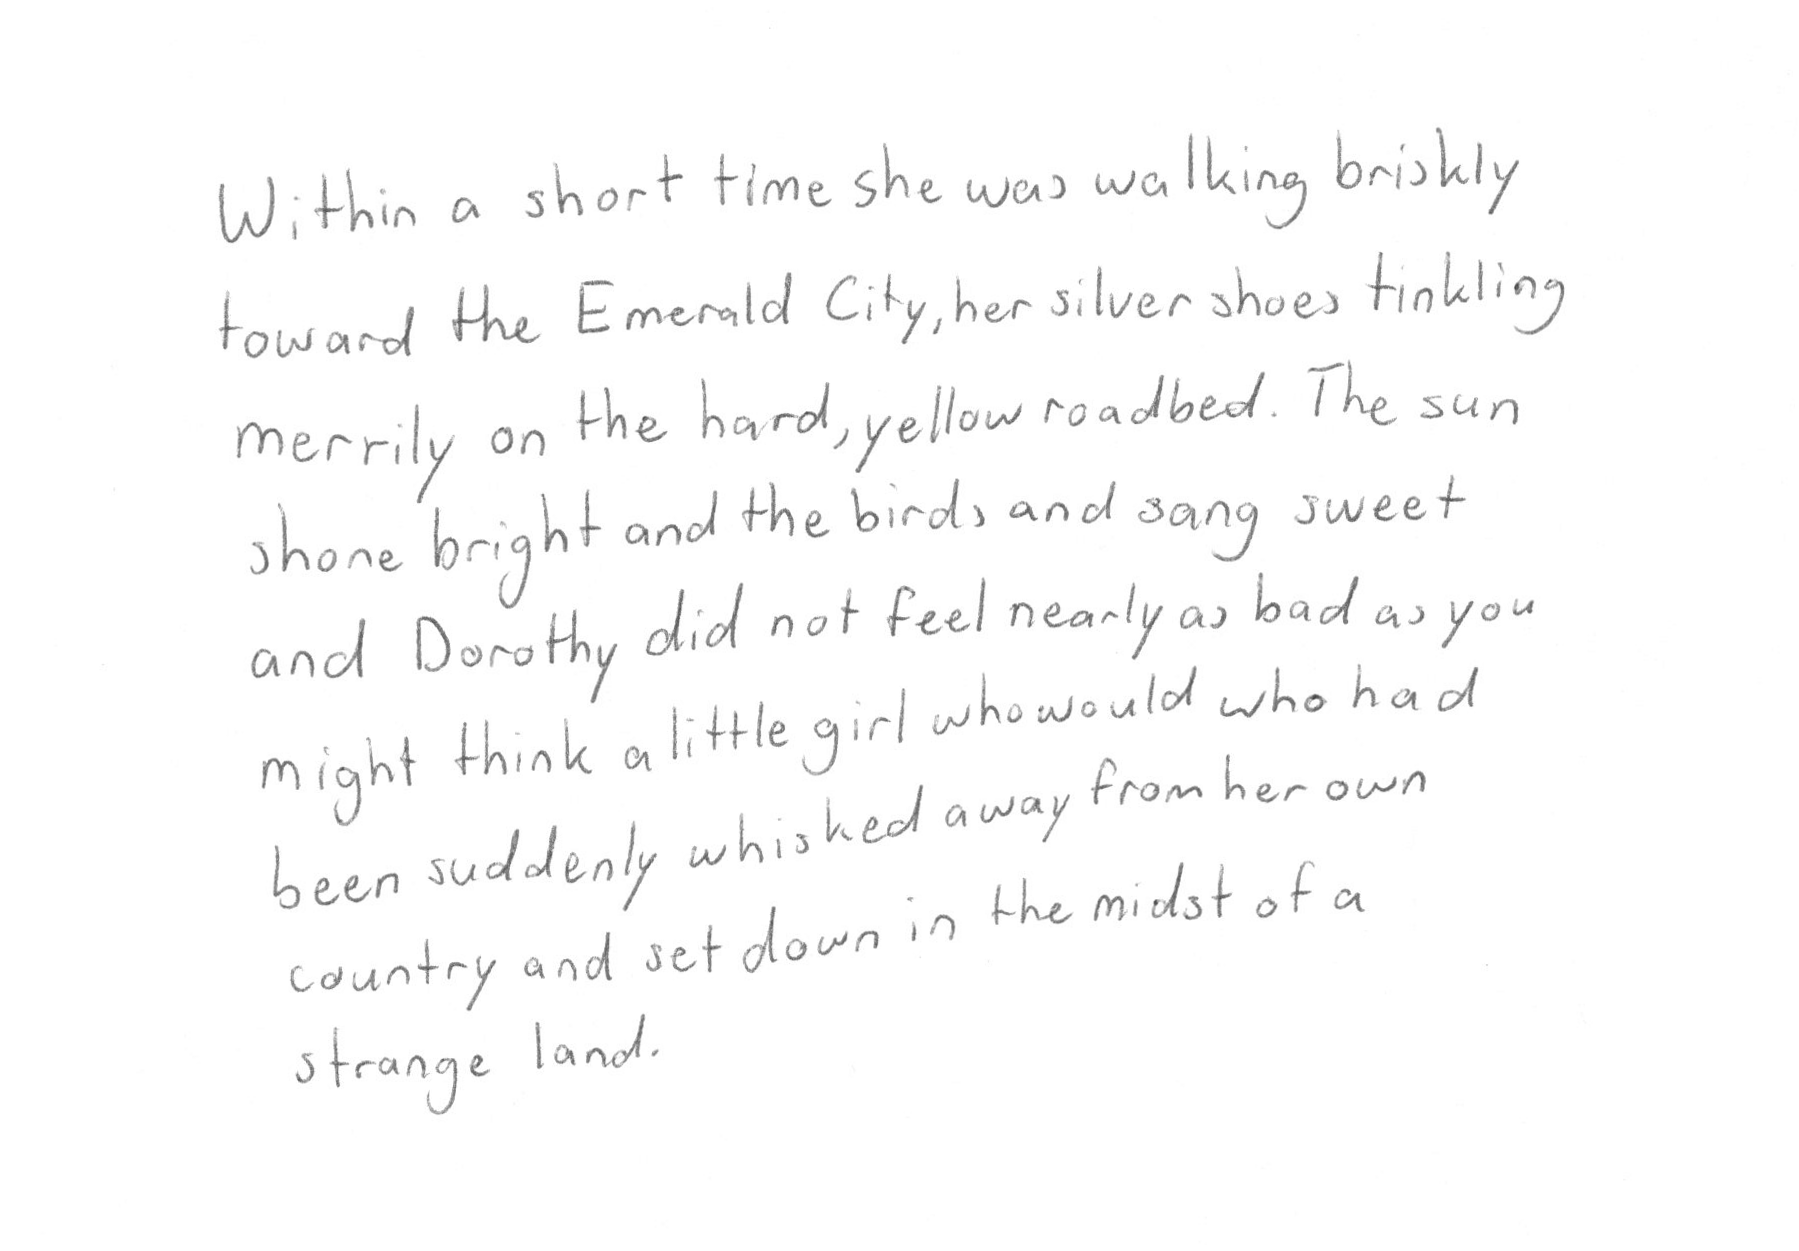 Within a short time she was walking briskly
toward the Emerald City, her silver shoes tinkling
merrily on the hard, yellow roadbed. The sun
shone bright and the birds and sang sweet
and Dorothy did not feel nearly as bad as you
might think a little girl who would who had
been suddenly whisked away from her own
country and set down in the midst of a
strange land.